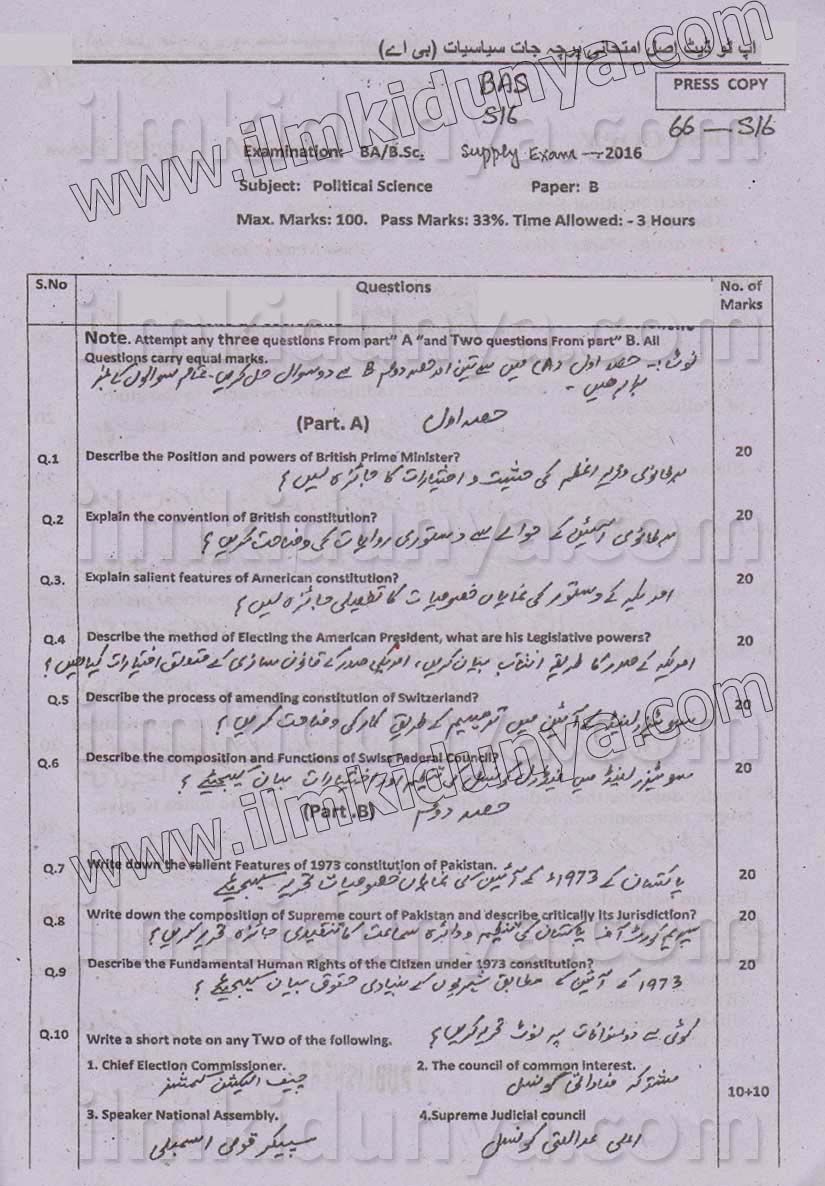 اپ ٹو ڈیٹ اصل امتحانی پرچہ جات سیاسیات (بی اے)
BAS
S/6
PRESS COPY
66 — S/6
Examination: BA/B.Sc. Supply Exam — 2016
Subject: Political Science Paper: B
Max. Marks: 100. Pass Marks: 33%. Time Allowed: - 3 Hours
S.No Questions No. of Marks
Note. Attempt any three questions From part" A "and Two questions From part" B. All
Questions carry equal marks.
نوٹ :- حصہ اول (A) میں سے تین اور حصہ دوئم B سے دو سوال حل کریں۔ تمام سوالوں کے نمبر
برابر ھیں -
(Part. A) حصہ اول
Q.1 Describe the Position and powers of British Prime Minister? 20
برطانوی وزیر اعظم کی حیثیت و اختیارات کا جائزہ لیں ؟
Q.2 Explain the convention of British constitution? 20
برطانوی آئین کے حوالے سے دستوری روایات کی وضاحت کریں ؟
Q.3. Explain salient features of American constitution? 20
امریکہ کے دستور کی نمایاں خصوصیات کا تفصیلی جائزہ لیں ؟
Q.4 Describe the method of Electing the American President, what are his Legislative powers? 20
امریکہ کے صدر کا طریقہ انتخاب بیان کریں، امریکی صدر کے قانون سازی کے متعلق اختیارات کیا ھیں ؟
Q.5 Describe the process of amending constitution of Switzerland? 20
سوئیٹزر لینڈ کے آئین میں ترمیم کے طریقے کار کی وضاحت کریں ؟
Q.6 Describe the composition and Functions of Swiss Federal Council? 20
سوئیٹزر لینڈ میں فیڈرل کونسل کی تنظیم اور اختیارات بیان کیجیئے ؟
(Part .B) حصہ دوئم
Q.7 Write down the salient Features of 1973 constitution of Pakistan. 20
پاکستان کے 1973ء کے آئین کی نمایاں خصوصیات تحریر کیجیئے
Q.8 Write down the composition of Supreme court of Pakistan and describe critically its Jurisdiction? 20
سپریم کورٹ آف پاکستان کی تنظیم و دائرہ سماعت کا تنقیدی جائزہ تحریر کریں ؟
Q.9 Describe the Fundamental Human Rights of the Citizen under 1973 constitution? 20
1973 کے آئین کے مطابق شہریوں کے بنیادی حقوق بیان کیجیئے ؟
Q.10 Write a short note on any Two of the following. کوئی سے دو سوالات پہ نوٹ تحریر کریں ؟
1. Chief Election Commissioner. 2. The council of common interest.
چیف الیکشن کمشنر مشترکہ مفاداتی کونسل
10+10
3. Speaker National Assembly. 4.Supreme Judicial council
سپیکر قومی اسمبلی اعلی عدالتی کونسل
www.ilmkidunya.com
www.ilmkidunya.com
ilmkidunya.com
ilmkidunya.com
ilmkidunya.com
ilmkidunya.com
ilmkidunya.com
ilmkidunya.com